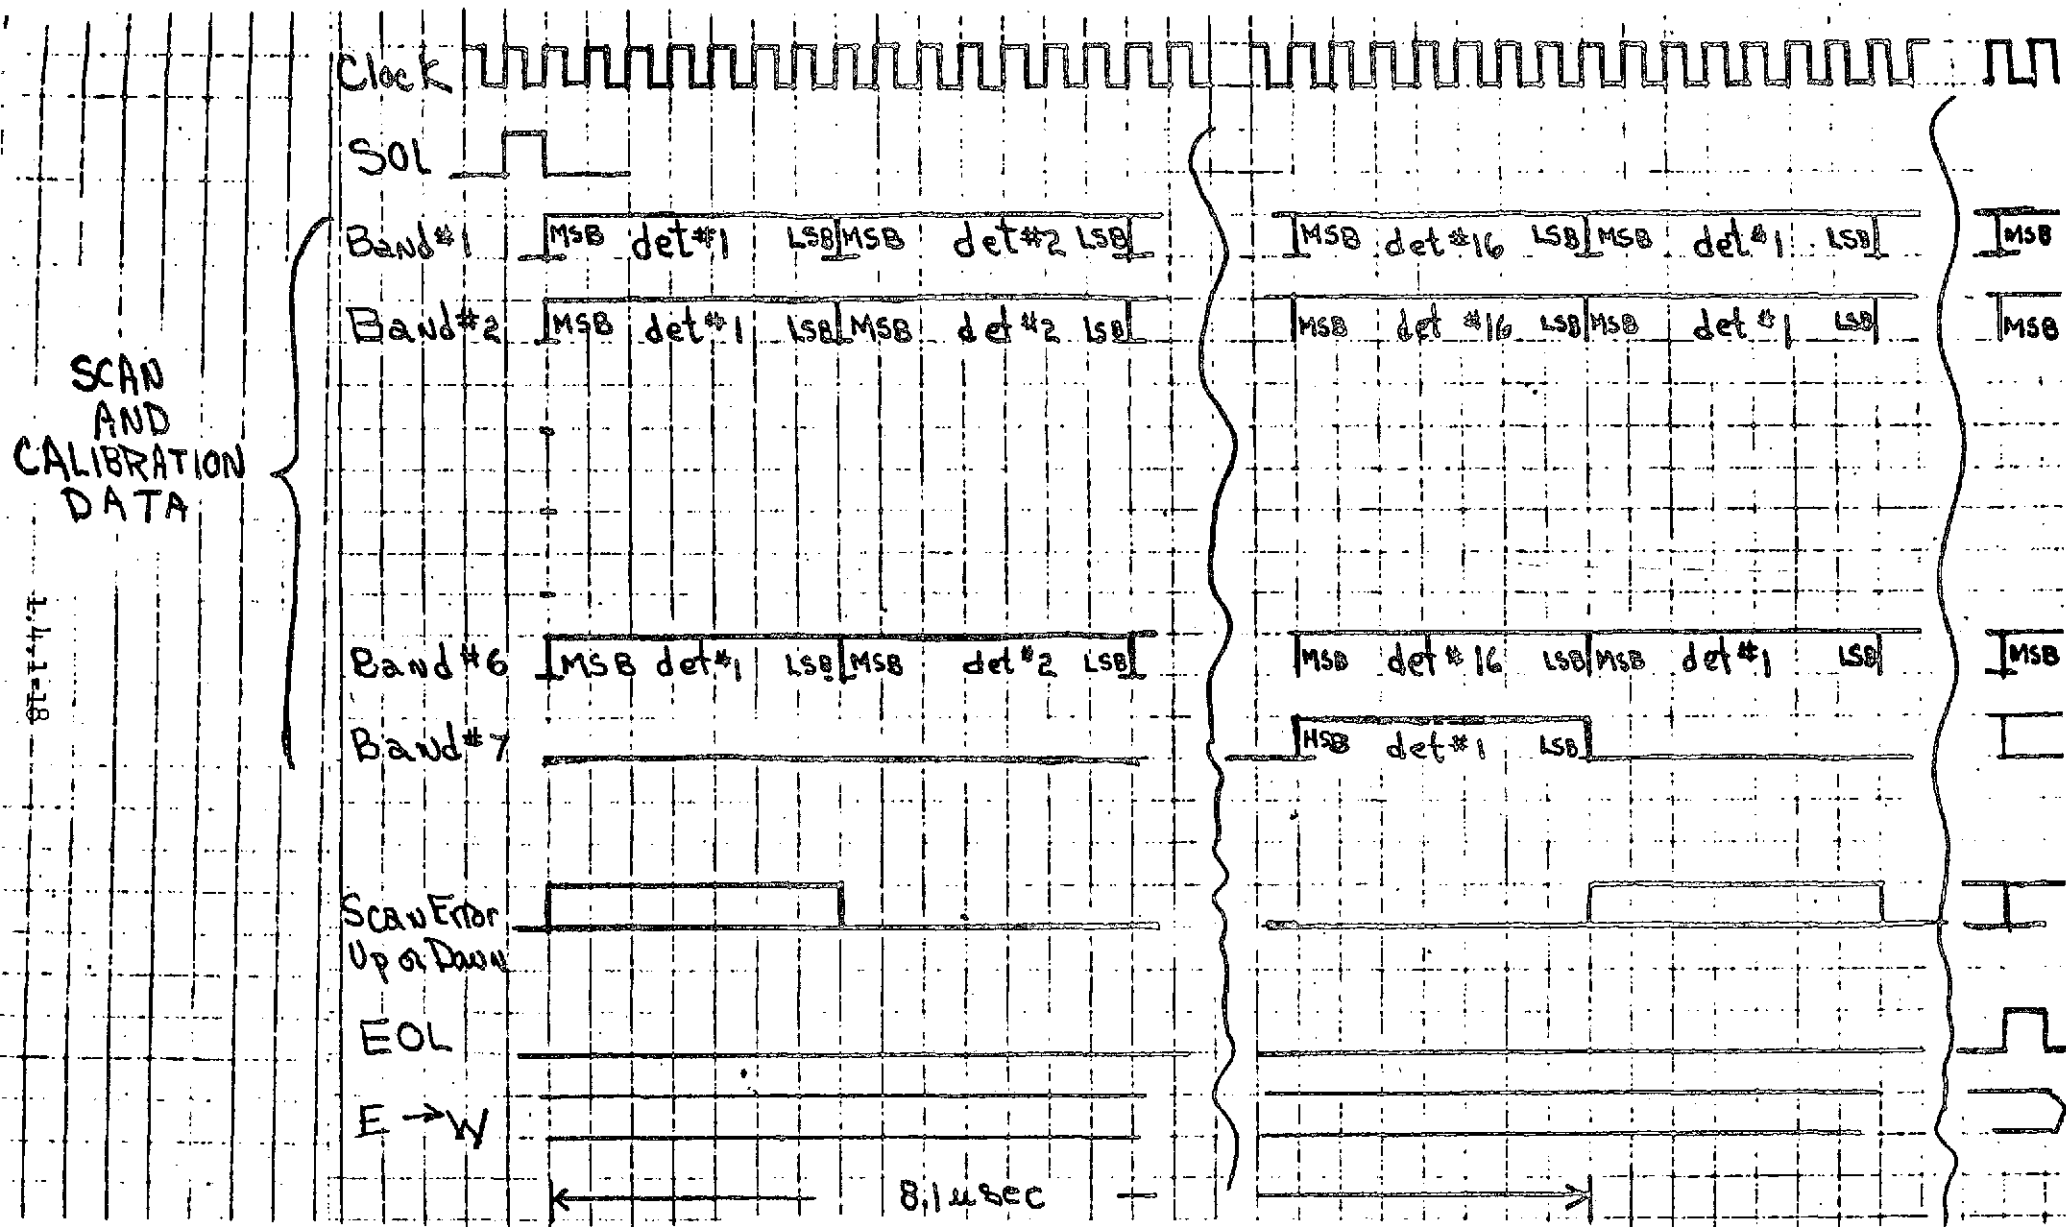 Clock
SOL
Band #1 MSB det #1 LSB MSB det #2 LSB MSB det #16 LSB MSB det #1 LSB MSB
Band #2 MSB det #1 LSB MSB det #2 LSB MSB det #16 LSB MSB det #1 LSB MSB
SCAN
AND
CALIBRATION
DATA
1.4.1-18
Band #6 MSB det #1 LSB MSB det #2 LSB MSB det #16 LSB MSB det #1 LSB MSB
Band #7 MSB det #1 LSB
Scan Error
Up or Down
EOL
E → W
8.1 usec